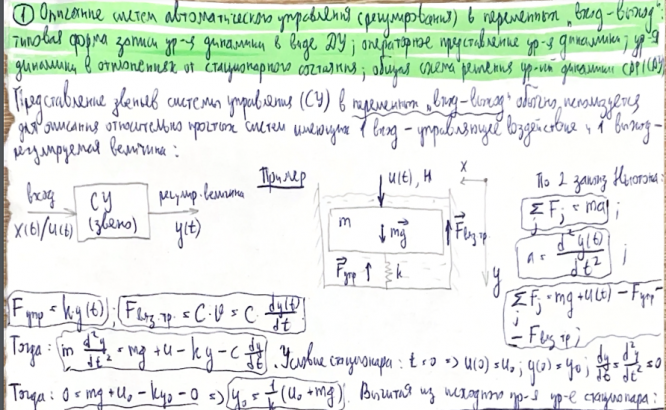 ① Описание систем автоматического управления (регулирования) в переменных „вход-выход":
типовая форма записи ур-я динамики в виде ДУ; операторное представление ур-я динамики; ур-я
динамики в отклонениях от стационарного состояния; общая схема решения ур-ий динамики САР (САУ)
Представление звеньев системы управления (СУ) в переменных „вход-выход" обычно используется
для описания относительно простых систем имеющих 1 вход - управляющее воздействие и 1 выход -
регулируемая величина:
вход
X(t)/U(t)
СУ
(звено)
регулир. величина
y(t)
Пример
U(t), H
x
m
mg⃗
F⃗упр
k
F⃗вяз.тр.
y
По 2 закону Ньютона:
∑ F_j = ma ;
j
a = d²y(t)/dt² ;
∑ F_j = mg + U(t) − Fупр −
j
− Fвяз.тр ;
Fупр = k·y(t) ; Fвяз.тр. = C·υ = C· dy(t)/dt
Тогда: m d²y/dt² = mg + u − ky − c dy/dt . Условие стационара: t=0 => U(0)=U₀; y(0)=y₀; dy/dt = d²y/dt² = 0
Тогда: 0 = mg + U₀ − ky₀ − 0 => y₀ = 1/k (U₀ + mg) . Вычитая из исходного ур-я ур-е стационара: